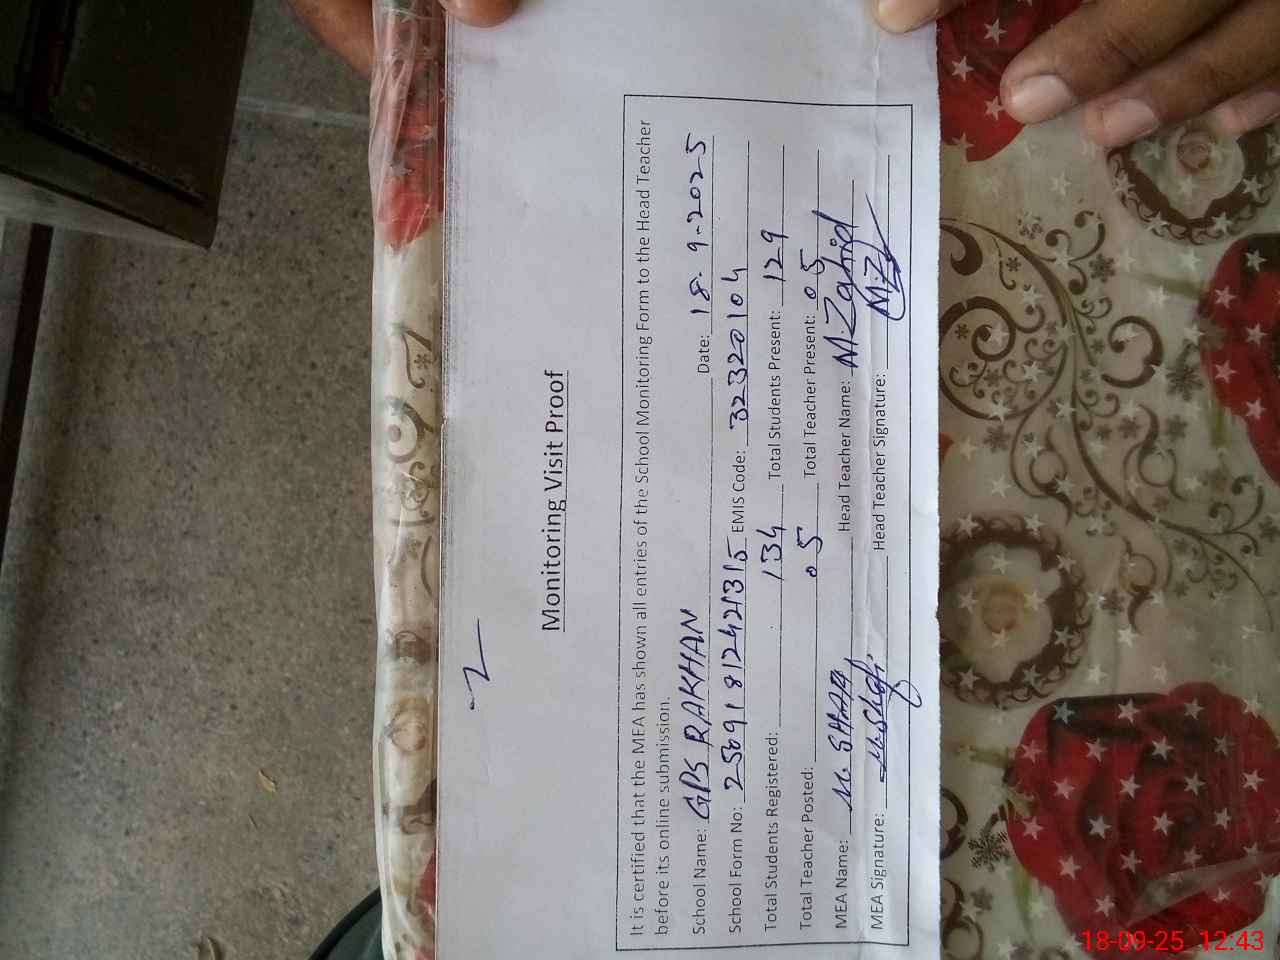 2
Monitoring Visit Proof
It is certified that the MEA has shown all entries of the School Monitoring Form to the Head Teacher
before its online submission.
School Name: GPS RAKHAN Date: 18-9-2025
School Form No: EMIS Code: 32320104
Total Students Registered: 134 Total Students Present: 129
Total Teacher Posted: 05 Total Teacher Present: 05
MEA Name: Head Teacher Name: M.Zahid
MEA Signature: Head Teacher Signature: M.Z
18-09-25 12:43